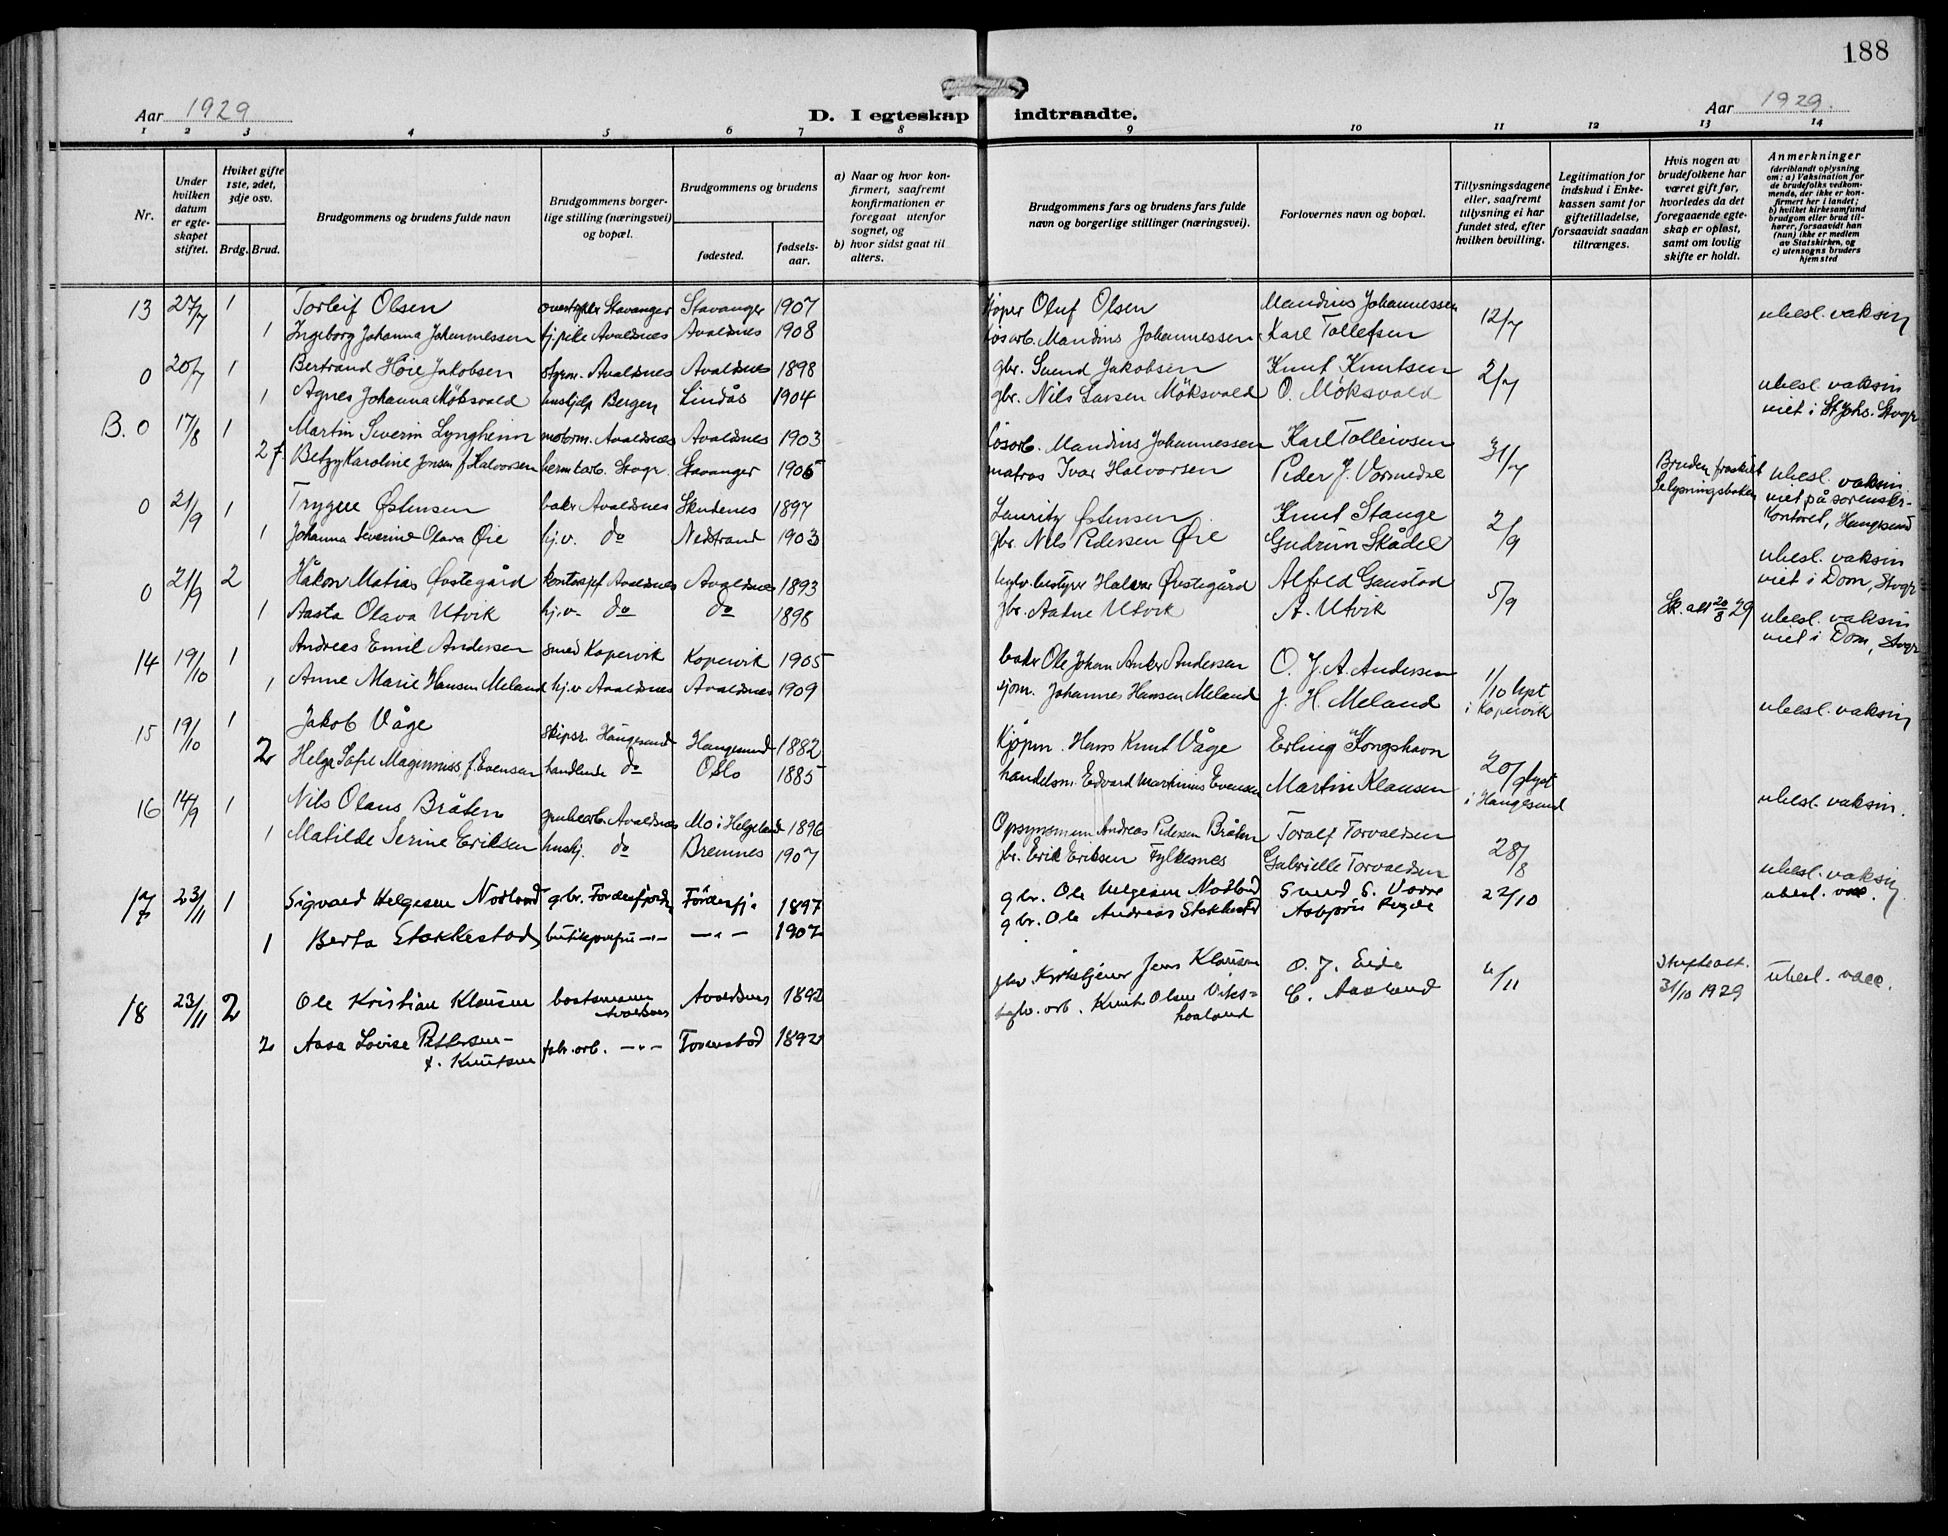 188
Aar 1929
D. I egteskap indtraadte.
Aar 1929.
1 2 3 4 5 6 7 8 9 10 11 12 13 14
Nr.
Under hvilken datum er egteskapet stiftet.
Hviket gifte 1ste, 2det, 3dje osv.
Brdg. Brud.
Brudgommens og brudens fulde navn
Brudgommens borgerlige stilling (næringsvei) og bopæl.
Brudgommens og brudens
fødested.
fødselsaar.
a) Naar og hvor konfirmert, saafremt konfirmationen er foregaat utenfor sognet, og
b) hvor sidst gaat til alters.
Brudgommens fars og brudens fars fulde navn og borgerlige stillinger (næringsvei).
Forlovernes navn og bopæl.
Tillysningsdagene eller, saafremt tillysning ei har fundet sted, efter hvilken bevilling.
Legitimation for indskud i Enkekassen samt for giftetilladelse, forsaavidt saadan tiltrænges.
Hvis nogen av brudefolkene har været gift før, hvorledes da det foregaaende egteskap er opløst, samt om lovlig skifte er holdt.
Anmerkninger (deriblandt oplysning om: a) Vaksination for de brudefolks vedkommende, der ikke er konfirmert her i landet; b) hvilket kirkesamfund brudgom eller brud tilhører, forsaavidt han (hun) ikke er medlem av Statskirken, og c) utensogns bruders hjemsted
13 27/7 1 Torleif Olsen Stavanger Stavanger 1907 Oluf Olsen Mandius Johannessen 12/7 ubesl. vaksin
1 Ingeborg Johanna Johannessen tj.pike Avaldsnes Avaldsnes 1908 løsarb. Mandius Johannessen Karl Tollefsen
0 20/7 1 Bertrand Høie Jakobsen styrm. Avaldsnes Avaldsnes 1898 gbr. Svend Jakobsen Knut Knutsen 2/7 ubesl. vaksin
1 Agnes Johanna Möksvold hushjelp Bergen Lindås 1904 gbr. Nils Larsen Möksvold O. Möksvold viet i St Johs. Stvgr
B. 0 17/8 1 Martin Severin Lyngheim motorm. Avaldsnes Avaldsnes 1903 løsarb. Mandius Johannessen Karl Tolleivsen 31/7
2 f. Betzy Karoline Jensen f. Halvorsen hermtarb. Stvgr. Stavanger 1905 matros Ivar Halvorsen Peder J. Vormedal Bruden fraskilt ubesl. vaksin
viet på sorenskr-
kontoret, Haugesund
0 21/9 1 Trygve Østensen baker Avaldsnes Skudenes 1897 Lauritz Østensen Knut Stange 2/9
1 Johanna Severine Olava Øie hj.v. do Nedstrand 1903 gbr. Nils Pedersen Øie Gudrun Skådel ubesl. vaksin
viet i Dom, Stvgr
0 21/9 2 Håkon Matias Øvstegård Avaldsnes Avaldsnes 1893 Øvstegård Alfold Gaustad 5/9
1 Aasta Olava Utvik hj.v. do do 1898 gbr. Aadne Utvik A. Utvik Sk. att 20/8 29 ubesl. vaksin
viet i Dom, Stvgr
14 19/10 1 Andreas Emil Andersen smed Kopervik Kopervik 1905 baker Ole Johan Anker Andersen O. J. A. Andersen 1/10 lyst
1 Anne Marie Hansen Meland hj.v Avaldsnes Avaldsnes 1909 sjøm. Johannes Hansen Meland J. H. Meland i Kopervik ubesl. vaksin
15 19/10 1 Jakob Våge skipsr. Haugesund Haugesund 1882 Kjøpm. Hans Knut Våge Erling Kongshavn
2 Helga Sofie Maginniss f. Evensen handlende do Oslo 1885 handelsm. Edvard Martinius Evensen Martin Klausen 20/9 lyst
i Haugesund ubesl. vaksin.
16 14/9 1 Nils Olaus Bråten grubearb. Avaldsnes Mo i Helgeland 1896 Opsynsmann Andreas Pedersen Bråten Toralf Torvaldsen 28/8
1 Matilde Serine Eriksen hushj. do Bremnes 1907 gbr. Erik Eriksen Fylkesnes Gabrielle Torvaldsen ubesl. vaksin
17 23/11 1 Sigvald Helgesen Nodland gbr. Førdesfjorden Førdesfj. 1897 gbr. Ole Helgesen Nodland Svend S. Vorre 22/10 ubesl. vac.
1 Berta Stakkestad —"— —"— 1907 gbr. Ole Andreas Stakkestad Asbjørn
18 23/11 2 Ole Kristian Klausen baatsmann Avaldsnes Avaldsnes 1892 Kirketjener Jens Klausen O. J. Eide 6/11 Skifteatt. 31/10 1929 ubesl. vacc.
2 Aasa Lovise Pettersen f. Knutsen fabr.arb. —"— 1892 arb. Knut Olsen Vikshaaland C. Aasland